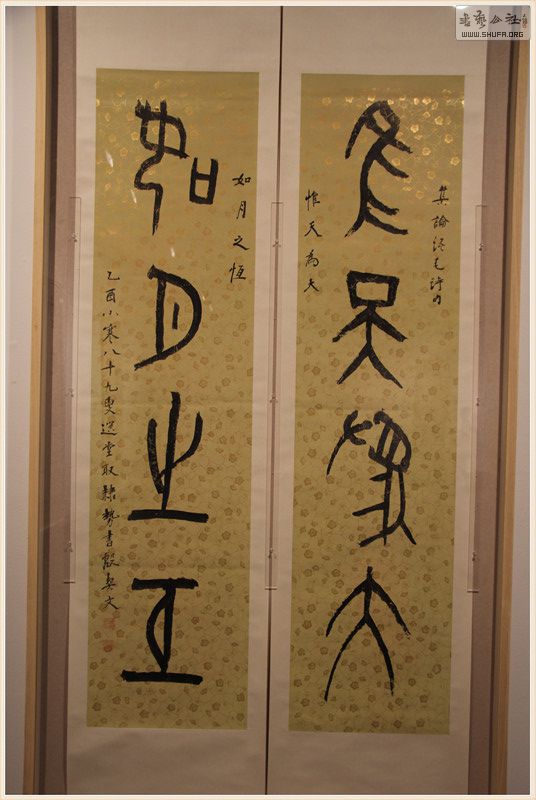 書藝公社
WWW.SHUFA.ORG
集論語毛詩句
隹天為大
惟天為大
如月之恒
如月之亙
乙酉小寒八十九叟選堂取隸勢書殷契文